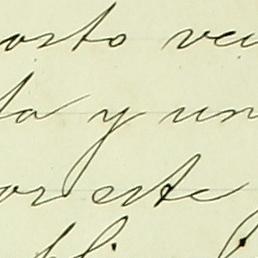 osto vei
ta y un
or este